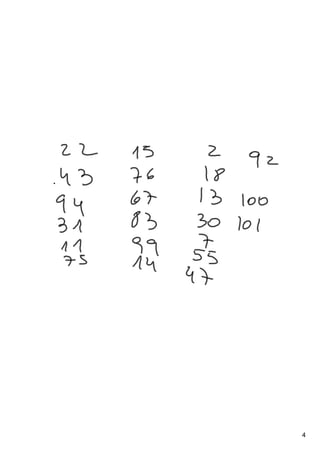 22 15 2 92
.43 76 18
94 67 13 100
31 83 30 101
11 99 7
75 14 55
47
4